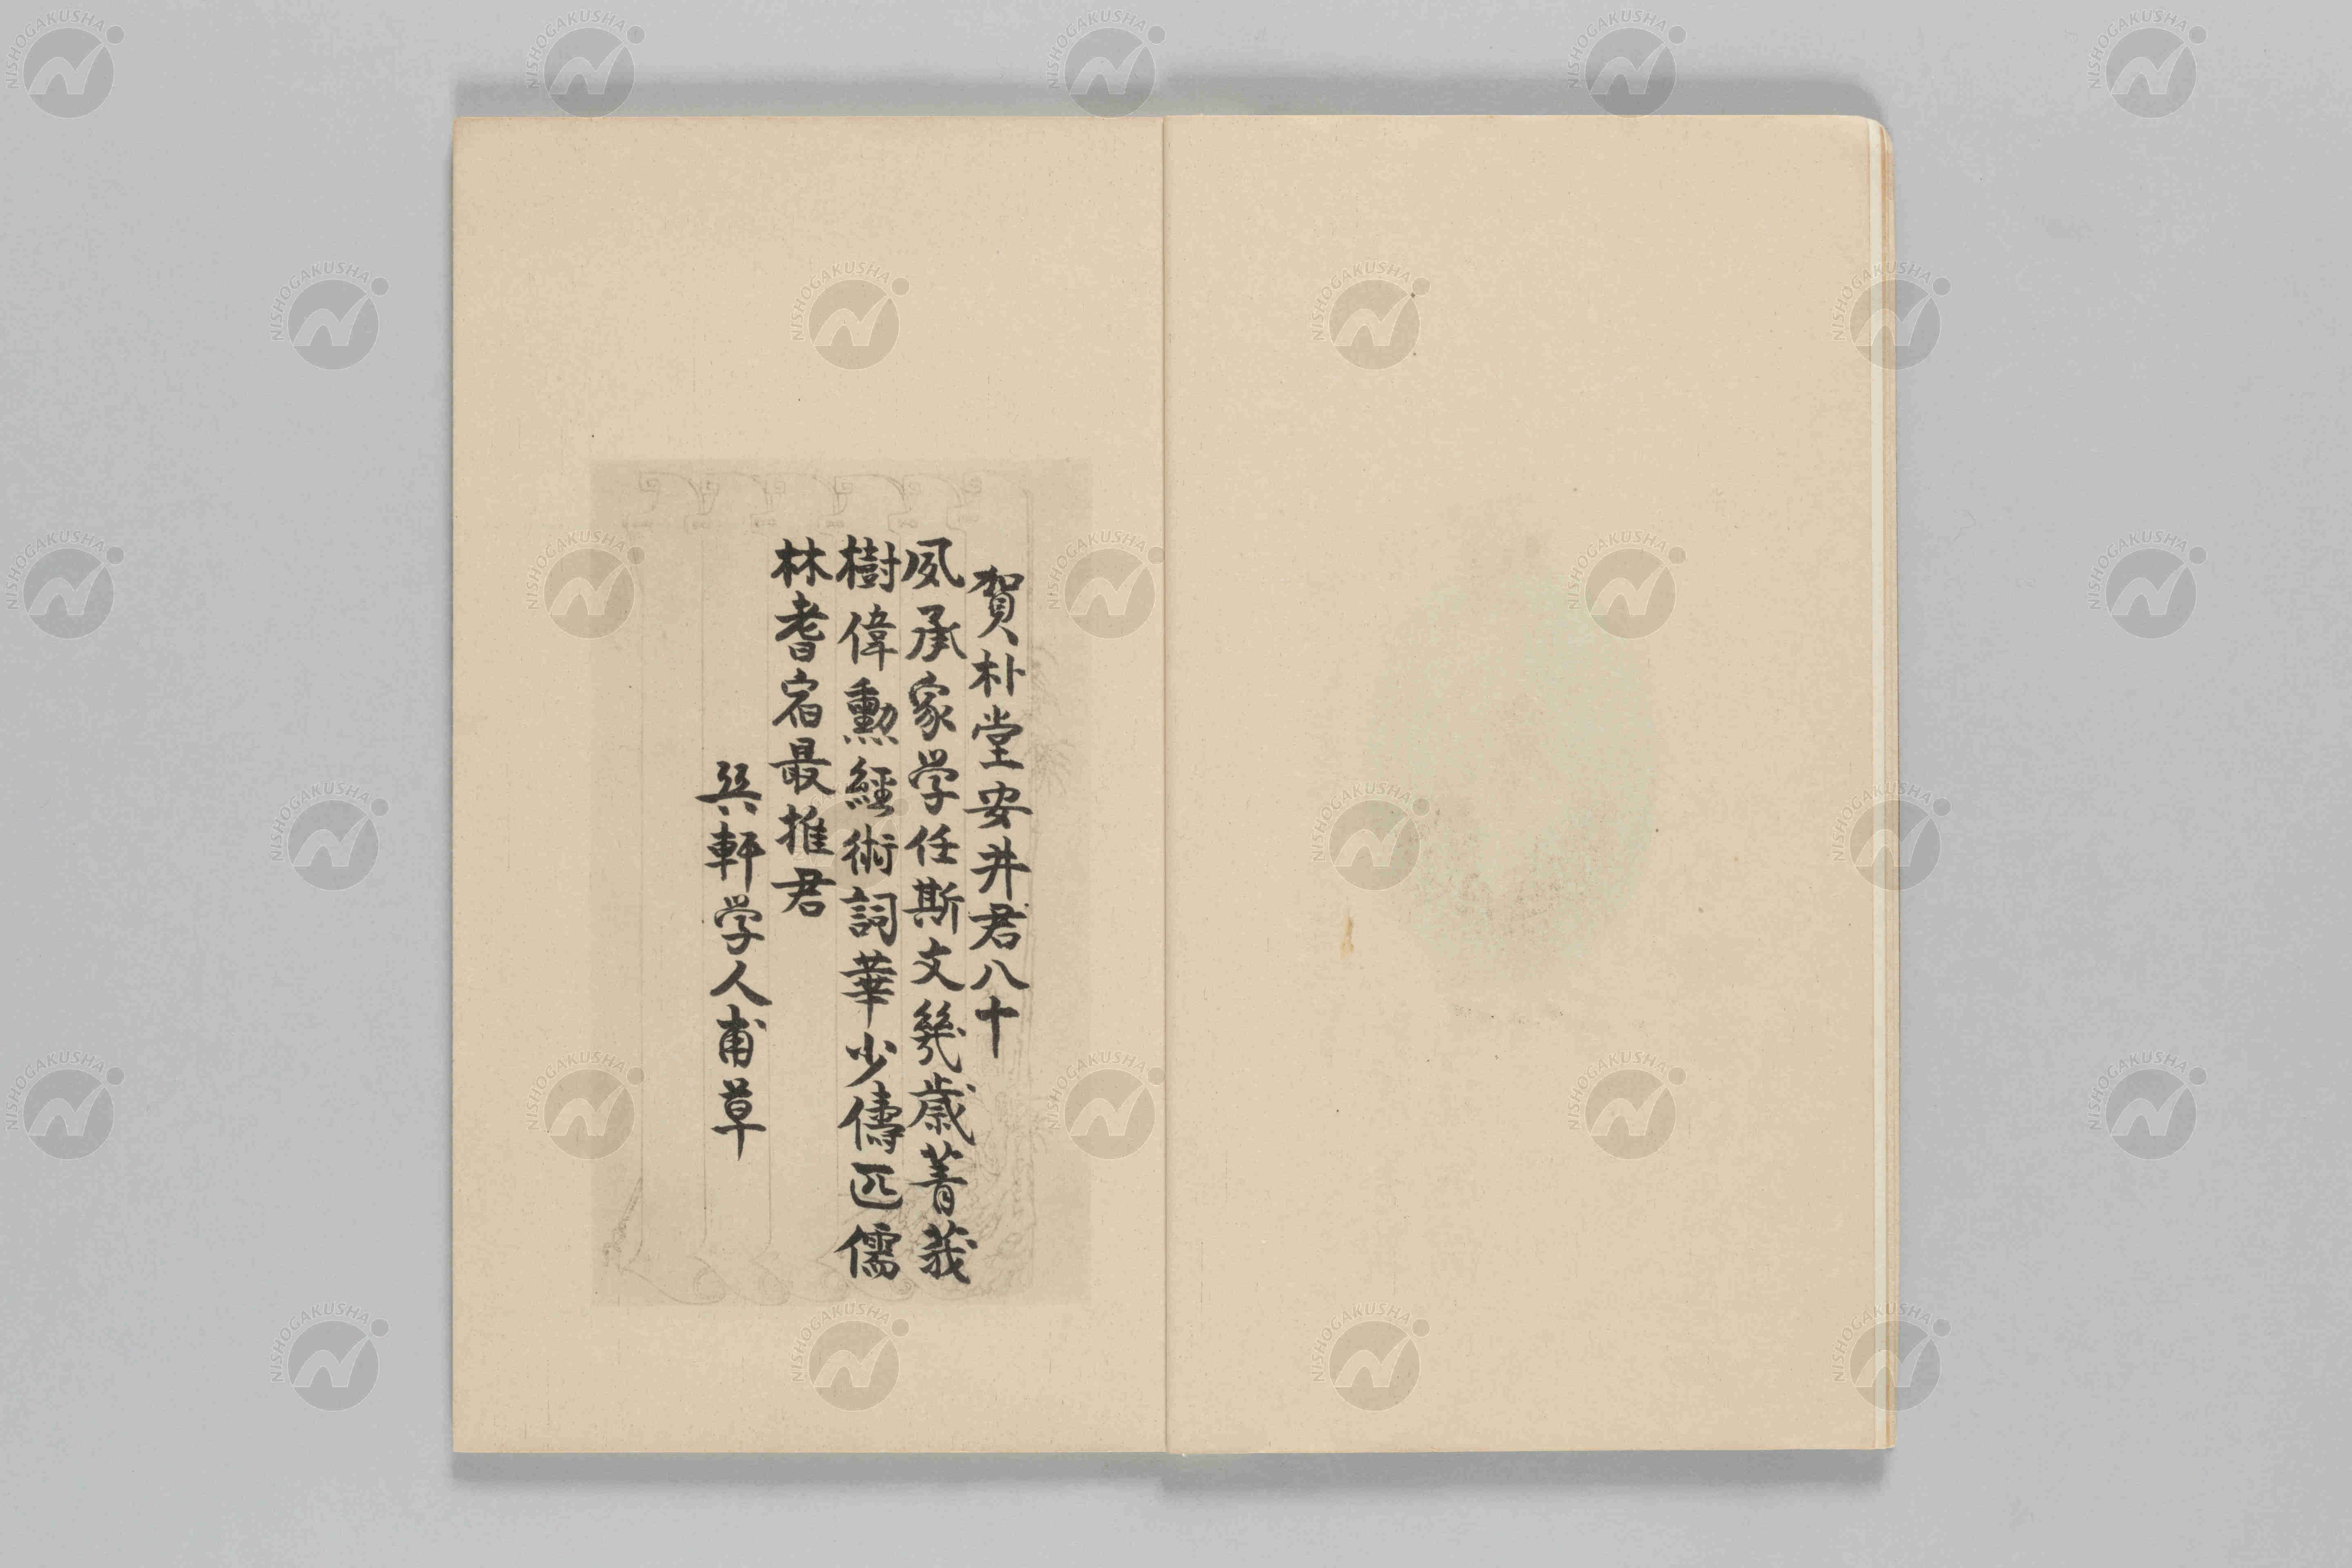 賀朴堂安井君八十
夙承家学任斯文幾歳菁莪
樹偉勲経術詞華少儔匹儒
林耆宿最推君
軒学人甫草
NISHOGAKUSHA